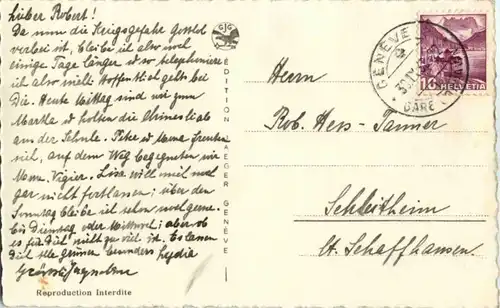 Lieber Robert!
Da nun die Kriegsgefahr Gottlob
vorbei ist, bleibe ich also noch
einige Tage länger u so telephoniere
ich also nicht. Hoffentlich geht's bei
Dir. Heute Mittag sind wir zum
Markt u holten die
an der Schule. Peter u Mama freuten
sich, auf dem Weg begegneten wir
Mme. Vigier. Lisa will mich noch
gar nicht fortlassen; über den
Sonntag bleibe ich schon noch gerne.
bis Dienstag oder Mittwoch; aber ob
es für Dich nicht zu viel ist. Es lassen
Dich alle grüssen besonders Lydia
Reproduction Interdite
EDITION JAEGER GENÈVE
GENÈVE
GARE
HELVETIA
Herrn
Rob. Hess-Tanner
Schleitheim
Ct. Schaffhausen.